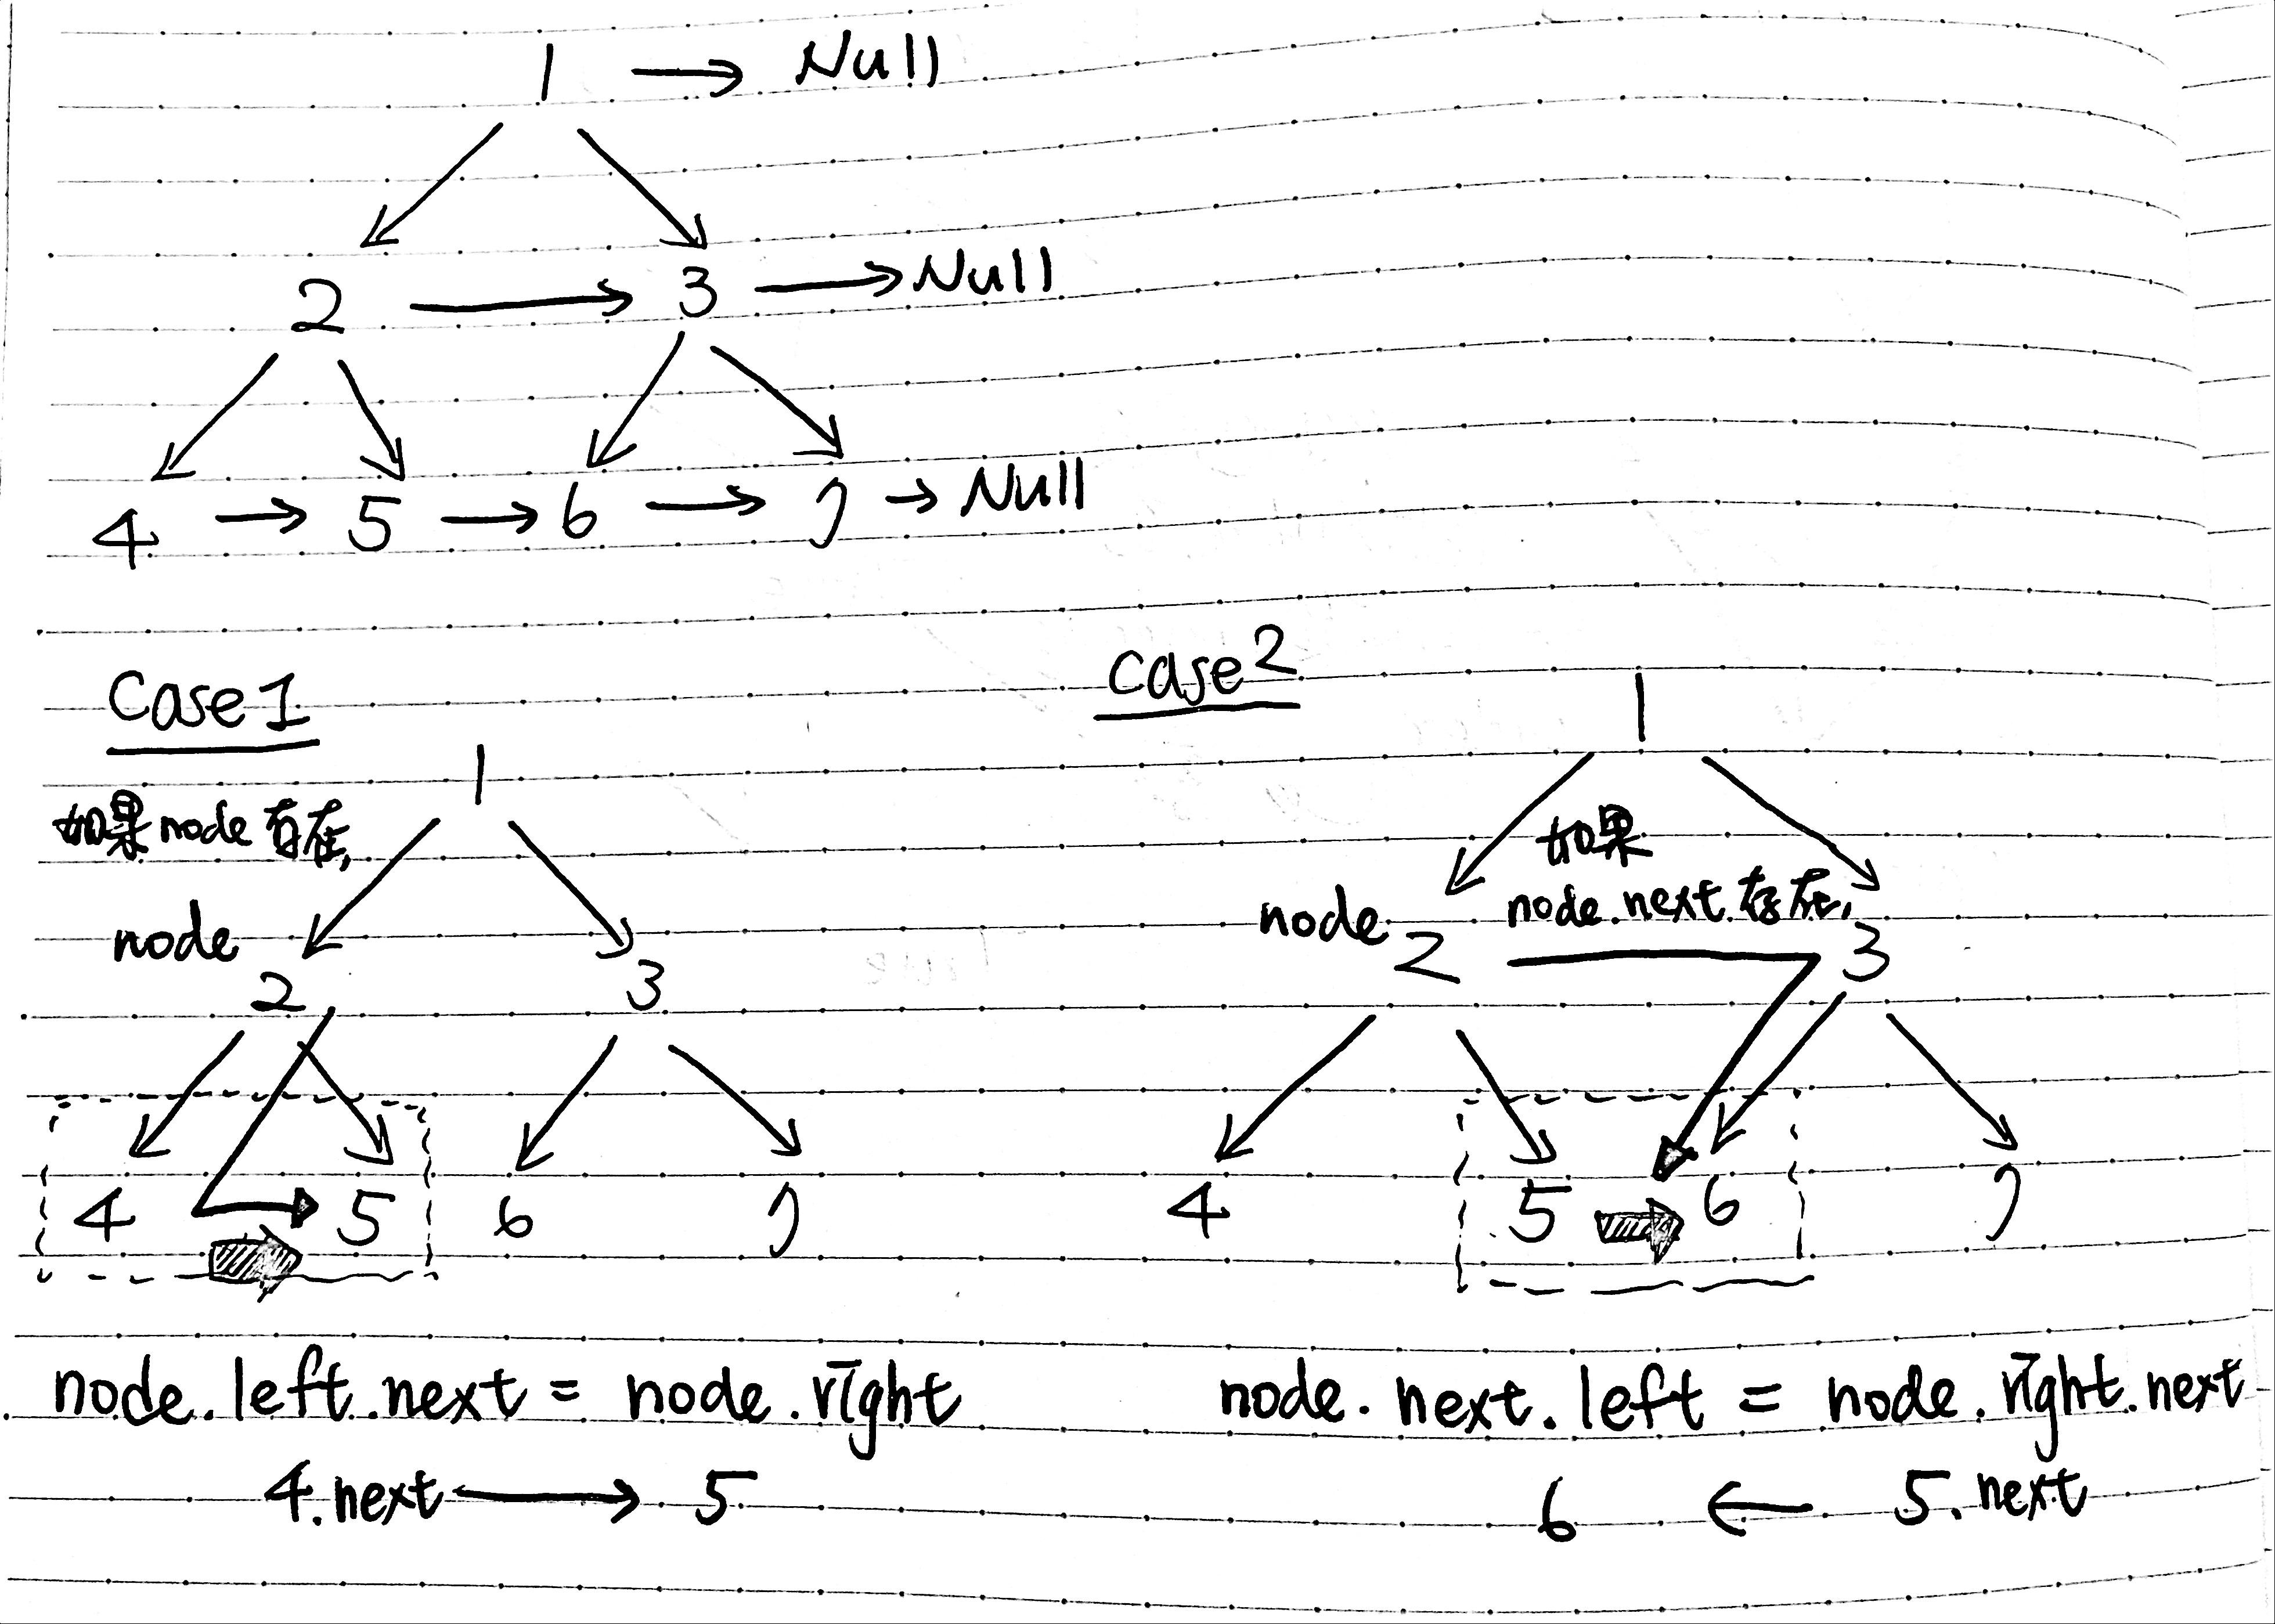 1 → Null
2 → 3 → Null
4 → 5 → 6 → 7 → Null
Case 1
1
如果node存在,
node
2 3
4 5 6 7
node.left.next = node.right
4.next → 5
case 2
1
如果
node.next 存在,
node
2 3
4 5 6 7
node.next.left = node.right.next
6 ← 5.next